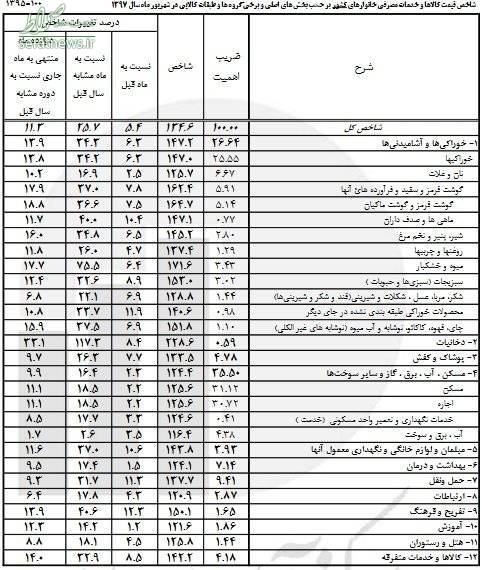 شاخص قیمت کالاها و خدمات مصرفی خانوارهای کشور بر حسب بخش‌های اصلی و برخی گروه‌ها و طبقات کالایی در شهریور ماه سال ۱۳۹۷
۱۳۹۵=۱۰۰
درصد تغییرات شاخص
شرح ضریب اهمیت شاخص نسبت به ماه قبل نسبت به ماه مشابه سال قبل دوازده ماه منتهی به ماه جاری نسبت به دوره مشابه سال قبل
شاخص کل ۱۰۰.۰۰ ۱۳۴.۶ ۵.۴ ۲۵.۷ ۱۱.۳
۱- خوراکی‌ها و آشامیدنی‌ها ۲۶.۶۴ ۱۴۷.۲ ۶.۳ ۳۴.۳ ۱۳.۹
خوراکیها ۲۵.۵۵ ۱۴۷.۰ ۶.۳ ۳۴.۲ ۱۳.۸
نان و غلات ۶.۶۷ ۱۲۵.۷ ۲.۵ ۱۶.۹ ۱۰.۲
گوشت قرمز و سفید و فرآورده های آنها ۵.۹۱ ۱۶۲.۴ ۷.۸ ۳۷.۰ ۱۷.۹
گوشت قرمز و گوشت ماکیان ۵.۱۴ ۱۶۴.۷ ۷.۵ ۳۶.۶ ۱۸.۸
ماهی ها و صدف داران ۰.۷۷ ۱۴۷.۱ ۱۰.۴ ۴۰.۰ ۱۱.۷
شیر، پنیر و تخم مرغ ۲.۸۰ ۱۴۵.۲ ۶.۵ ۳۴.۸ ۱۶.۰
روغنها و چربیها ۱.۲۹ ۱۳۷.۴ ۴.۷ ۲۶.۰ ۱۱.۸
میوه و خشکبار ۳.۴۳ ۱۷۱.۶ ۶.۴ ۷۵.۵ ۱۷.۷
سبزیجات (سبزی‌ها و حبوبات) ۳.۰۲ ۱۵۳.۰ ۸.۹ ۳۲.۶ ۱۲.۴
شکر، مربا، عسل، شکلات و شیرینی(قند و شکر و شیرینی‌ها) ۱.۴۴ ۱۲۸.۸ ۶.۹ ۲۲.۱ ۶.۸
محصولات خوراکی طبقه بندی نشده در جای دیگر ۰.۹۸ ۱۴۰.۶ ۱۱.۹ ۳۳.۷ ۱۰.۸
چای، قهوه، کاکائو، نوشابه و آب میوه (نوشابه های غیر الکلی) ۱.۱۰ ۱۵۱.۸ ۶.۹ ۳۷.۵ ۱۵.۹
۲- دخانیات ۰.۵۹ ۲۲۸.۶ ۸.۴ ۱۱۷.۳ ۳۳.۱
۳- پوشاک و کفش ۴.۷۸ ۱۳۳.۵ ۷.۷ ۲۶.۳ ۹.۷
۴- مسکن، آب، برق، گاز و سایر سوخت‌ها ۳۵.۵۰ ۱۲۴.۴ ۲.۳ ۱۶.۴ ۹.۹
مسکن ۳۱.۱۲ ۱۲۵.۶ ۲.۲ ۱۸.۵ ۱۱.۱
اجاره ۳۰.۷۲ ۱۲۵.۶ ۲.۲ ۱۸.۵ ۱۱.۱
خدمات نگهداری و تعمیر واحد مسکونی (خدمت) ۰.۴۱ ۱۲۴.۶ ۳.۳ ۱۷.۷ ۸.۵
آب، برق و سوخت ۴.۳۸ ۱۱۶.۴ ۳.۵ ۲.۶ ۱.۷
۵- مبلمان و لوازم خانگی و نگهداری معمول آنها ۳.۹۳ ۱۴۳.۸ ۱۰.۶ ۳۷.۰ ۱۱.۶
۶- بهداشت و درمان ۷.۱۴ ۱۲۴.۱ ۱.۵ ۱۷.۴ ۹.۵
۷- حمل ونقل ۹.۴۱ ۱۳۷.۷ ۱۱.۳ ۳۱.۷ ۹.۳
۸- ارتباطات ۲.۸۷ ۱۲۰.۹ ۴.۳ ۱۷.۸ ۶.۴
۹- تفریح و فرهنگ ۱.۶۵ ۱۵۰.۱ ۱۲.۳ ۴۰.۶ ۱۳.۹
۱۰- آموزش ۱.۸۶ ۱۲۱.۶ ۱.۲ ۱۴.۲ ۱۲.۳
۱۱- هتل و رستوران ۱.۴۴ ۱۲۵.۸ ۴.۵ ۱۸.۱ ۸.۸
۱۲- کالاها و خدمات متفرقه ۴.۱۸ ۱۴۲.۲ ۸.۵ ۳۲.۹ ۱۴.۰